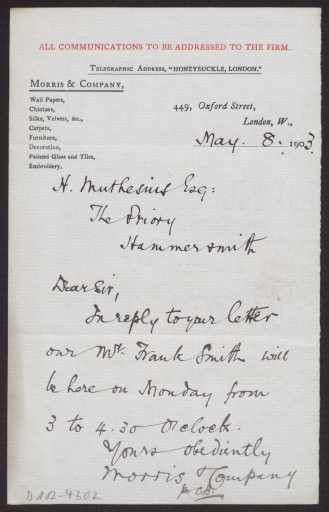 ALL COMMUNICATIONS TO BE ADDRESSED TO THE FIRM.
TELEGRAPHIC ADDRESS, "HONEYSUCKLE, LONDON."
MORRIS & COMPANY,
Wall Papers,
Chintzes,
Silks, Velvets, &c.,
Carpets,
Furniture,
Decoration,
Painted Glass and Tiles,
Embroidery.
449, Oxford Street,
London, W.,
May. 8. 1903.
H. Muthesius Esq:
The Priory
Hammersmith
Dear Sir,
In reply to your letter
our Mr. Frank Smith will
be here on Monday from
3 to 4.30 O'clock.
Yours obediently
Morris & Company